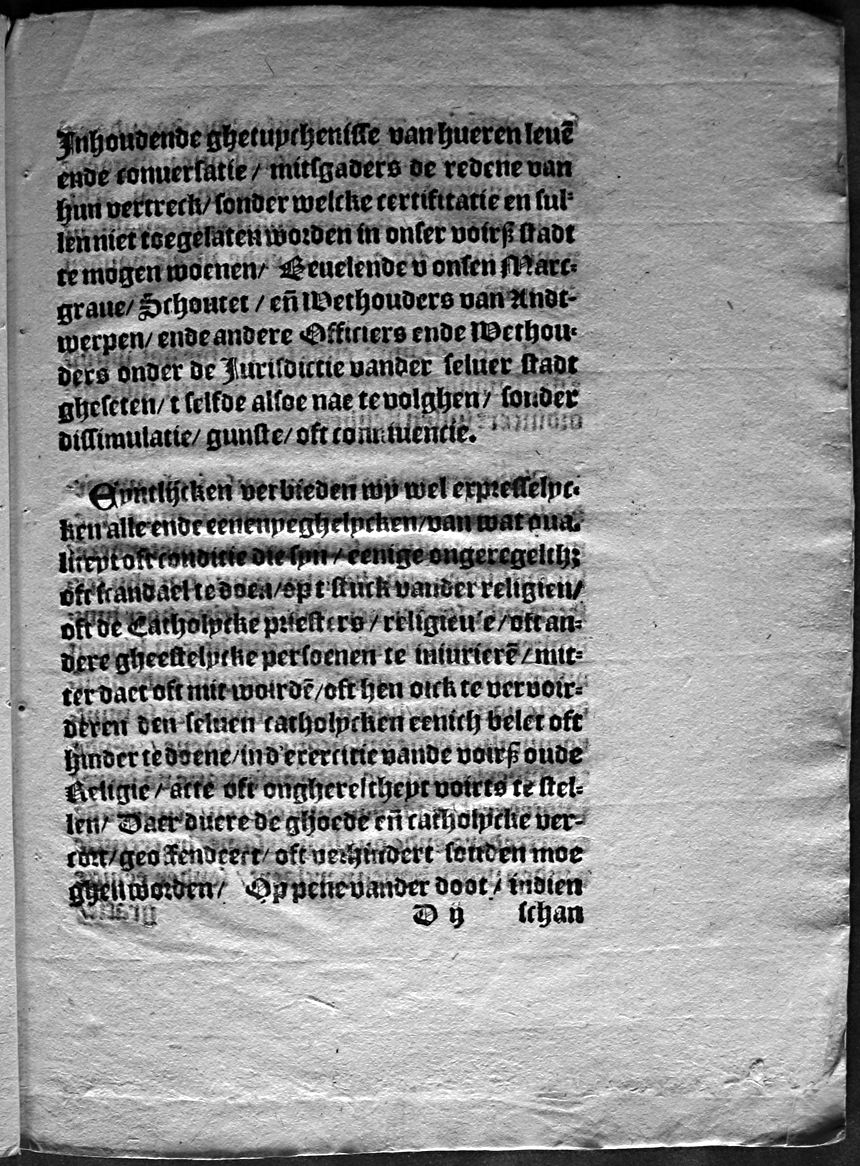 Inhoudende ghetuychenisse van hueren leuē
ende conuersatie / mitsgaders de redene van
hun vertreck / sonder welcke certificatie en sul-
len niet toegelaten worden in onser voirß stadt
te mogen woenen / Beuelende v onsen Marc-
graue / Schoutet / eñ Wethouders van Andt-
werpen / ende andere Officiers ende Wethou-
ders onder de Jurisdictie vander seluer stadt
gheseten / t selfde alsoe nae te volghen / sonder
dissimulatie / gunste / oft conniuencie.
Eyntlijcken verbieden wy wel expresselyc-
ken alle ende eenenyeghelycken / van wat qua-
liteyt oft conditie die syn / eenige ongeregelth;
oft scandael te doen / op t stuck vander religien /
oft de Catholycke priesters / religieuse / oft an-
dere gheestelycke persoenen te iniurierē / mit-
ter daet oft mit woirdē / oft hen oick te vervoir-
deren den seluen catholycken eenich belet oft
hinder te doene / in d'exercitie vande voirß oude
Religie / acte oft onghereschept voirts te stel-
len / Daer duere de ghoede eñ catholycke ver-
/ geoffendeert / oft verhindert souden moe
ghen worden / Op pene vander doot / indien
D ij schan